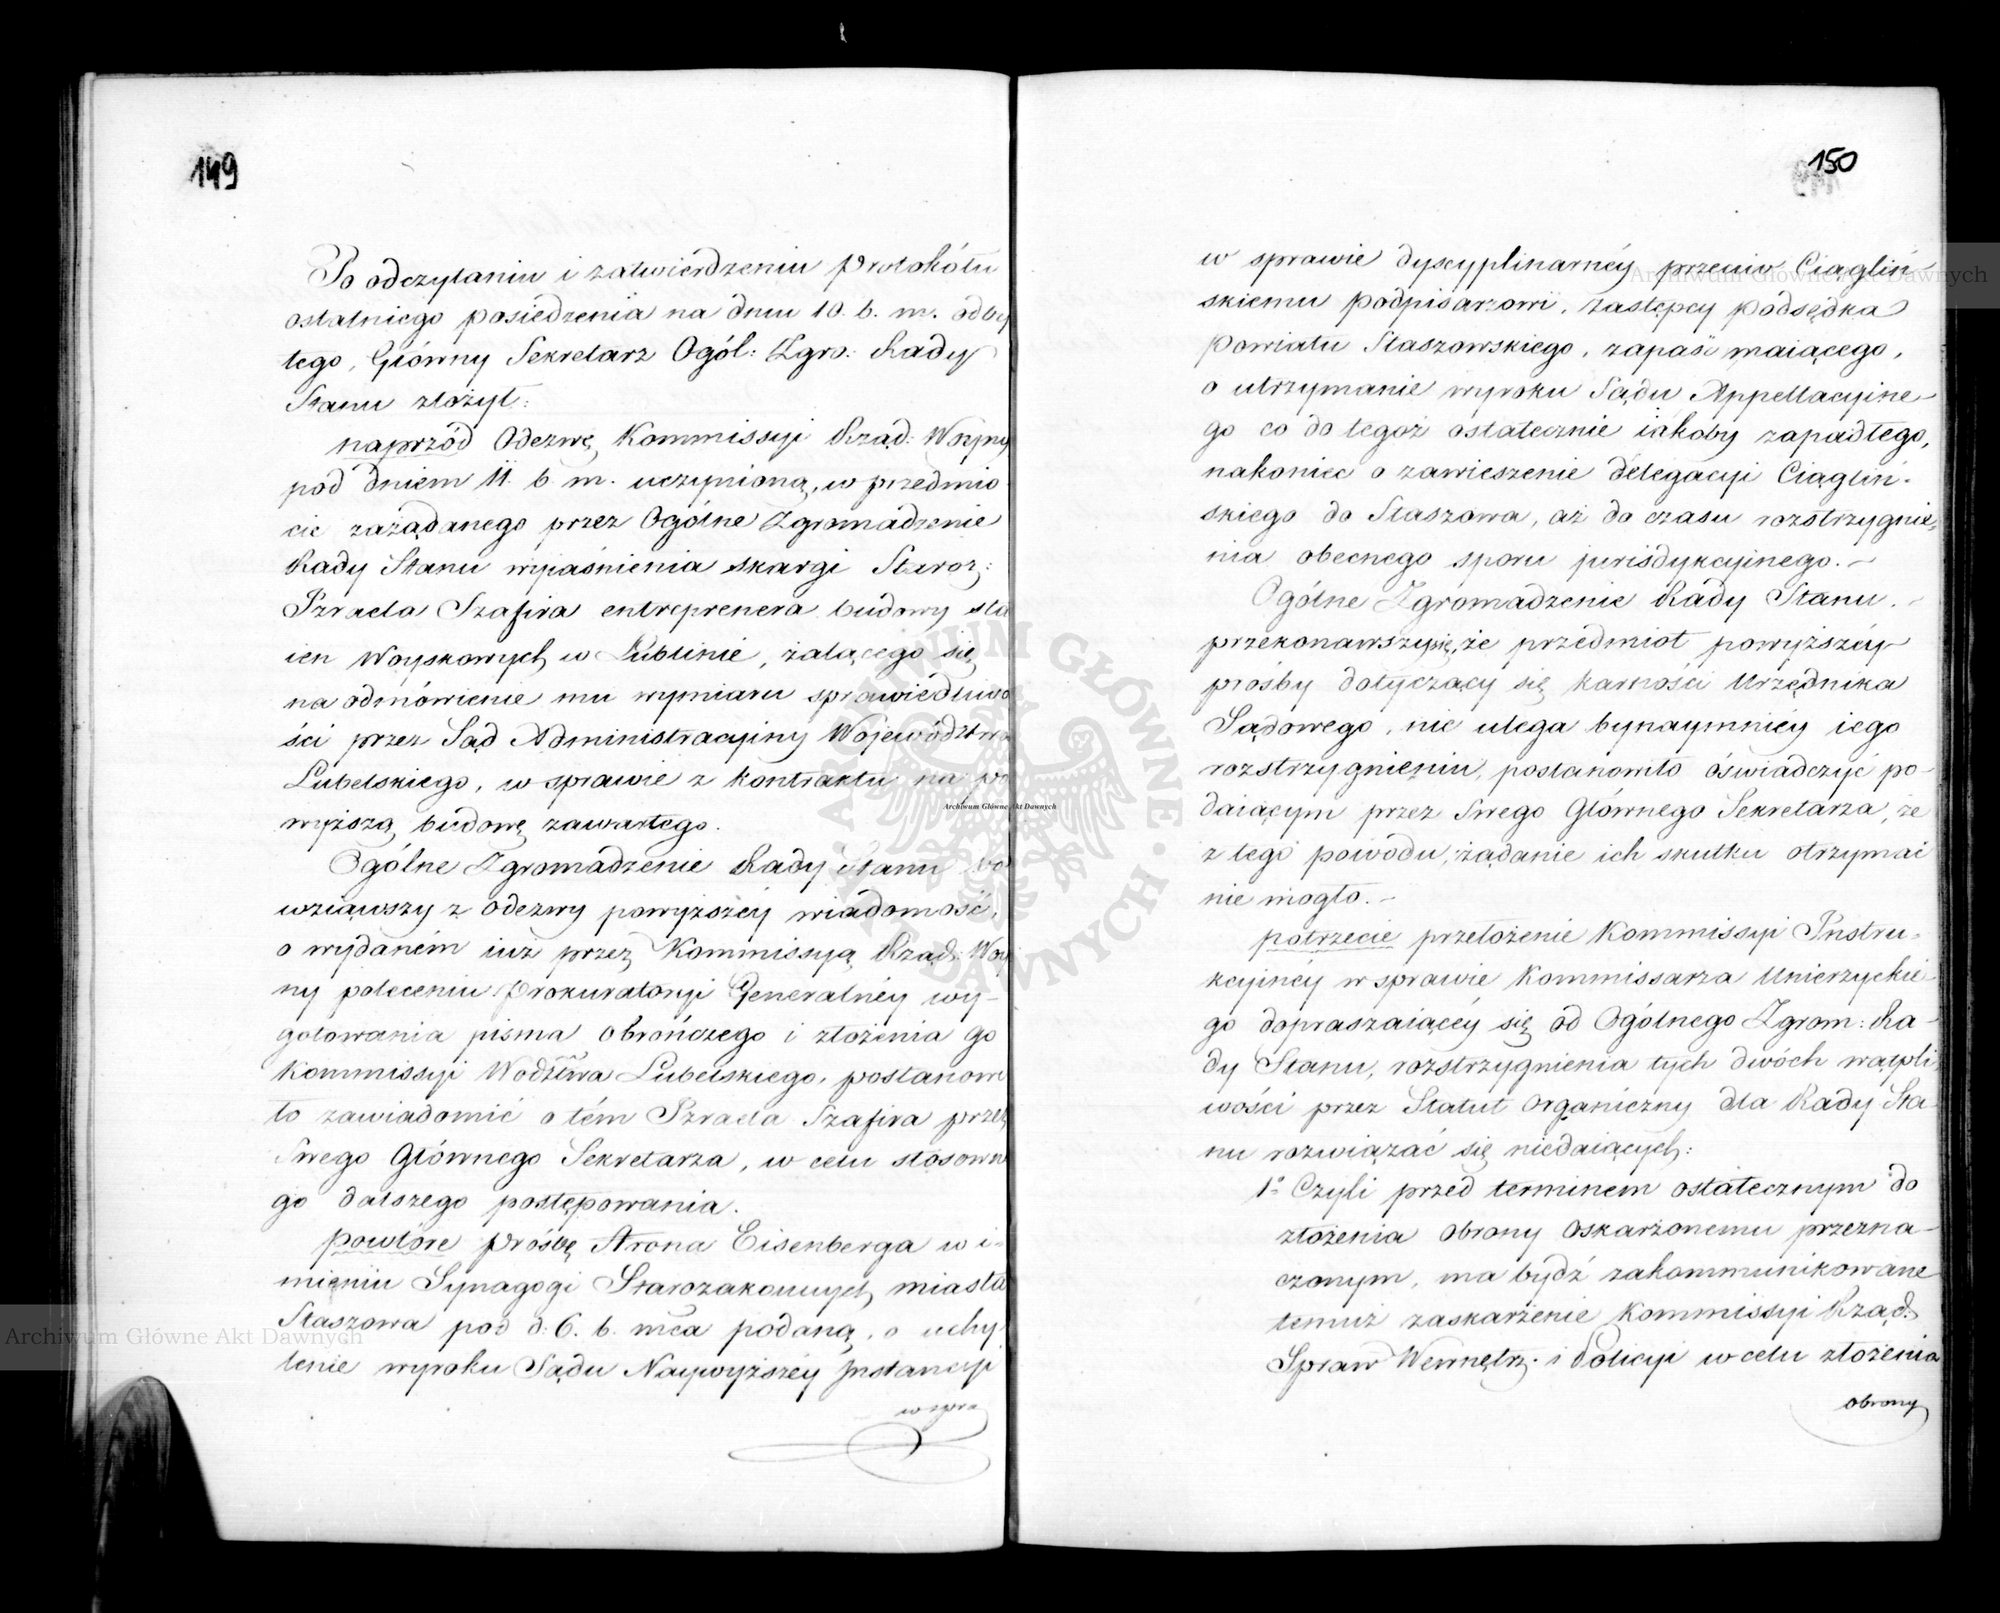 149
Po odczytaniu i zatwierdzeniu Protokółu
ostatniego posiedzenia na dniu 10. b. m. odby
tego, Główny Sekretarz Ogól: Zgro: Rady
Stanu złożył:
naprzód Odezwę Kommissyi Rząd: Woyny
pod dniem 11. b. m. uczynioną, w przedmio
cie zażądanego przez Ogólne Zgromadzenie
Rady Stanu wyiaśnienia skargi Staroz:
Izraela Szafira entreprenera budowy sta
ien Woyskowych w Lublinie, żalącego się
na odmówienie mu wymiaru sprawiedliwo
ści przez Sąd Administracyiny Województwa
Lubelskiego, w sprawie z kontraktu na po
wyższą budowę zawartego.
Ogólne Zgromadzenie Rady Stanu po
wziąwszy z Odezwy powyższéy wiadomość,
o wydaném iuż przez Kommissyą Rząd: Woy
ny poleceniu Prokuratoryi Generalnéy wy-
gotowania pisma obrończego i złożenia go
Kommissyi Wodztwa Lubelskiego, postanowi
ło zawiadomić o tém Izraela Szafira przez
Swego Głównego Sekretarza, w celu stosowne
go dalszego postępowania.
powtóre Prośbę Arona Eisenberga w i-
mieniu Synagogi Starozakonnych miasta
Staszowa pod d: 6. b. mca podaną, o uchy
lenie wyroku Sądu Naywyższéy Instancyi
w spra
150
w sprawie dyscyplinarnéy przeciw Ciągliń-
skiemu Podpisarzowi, Zastępcy Podsędka
Powiatu Staszowskiego, zapaść maiącego,
o utrzymanie wyroku Sądu Appellacyine-
go co do tegoż ostatecznie iakoby zapadłego,
nakoniec o zawieszenie délegacyi Ciągliń-
skiego do Staszowa, aż do czasu rozstrzygnie,
nia obecnego sporu jurisdykcyinego.
Ogólne Zgromadzenie Rady Stanu.
przekonawszy się, że przedmiot powyższéy
prośby dotyczący się karności Urzędnika
Sądowego, nie ulega bynaymniéy iego
rozstrzygnieniu, postanowiło oświadczyć po-
daiącym przez Swego Głównego Sekretarza, że
z tego powodu, żądanie ich skutku otrzymać
nie mogło.
potrzecie przełożenie Kommissyi Instru-
kcyinéy w sprawie Kommissarza Unierzyckie-
go dopraszaiącéy się od Ogólnego Zgrom: Ra-
dy Stanu, rozstrzygnienia tych dwóch wątpli
wości przez Statut Organiczny dla Rady Sta
nu rozwiązać się niedaiących:
1o Czyli przed terminem ostatecznym do
złożenia obrony oskarżonemu przezna-
czonym, ma bydź zakommunikowane
temuż zaskarżenie Kommissyi Rząd:
Spraw Wewnętrz. i Policyi w celu złożenia
obrony
Archiwum Główne Akt Dawnych
Archiwum Główne Akt Dawnych
Archiwum Główne Akt Dawnych
ARCHIWUM GŁÓWNE AKT DAWNYCH